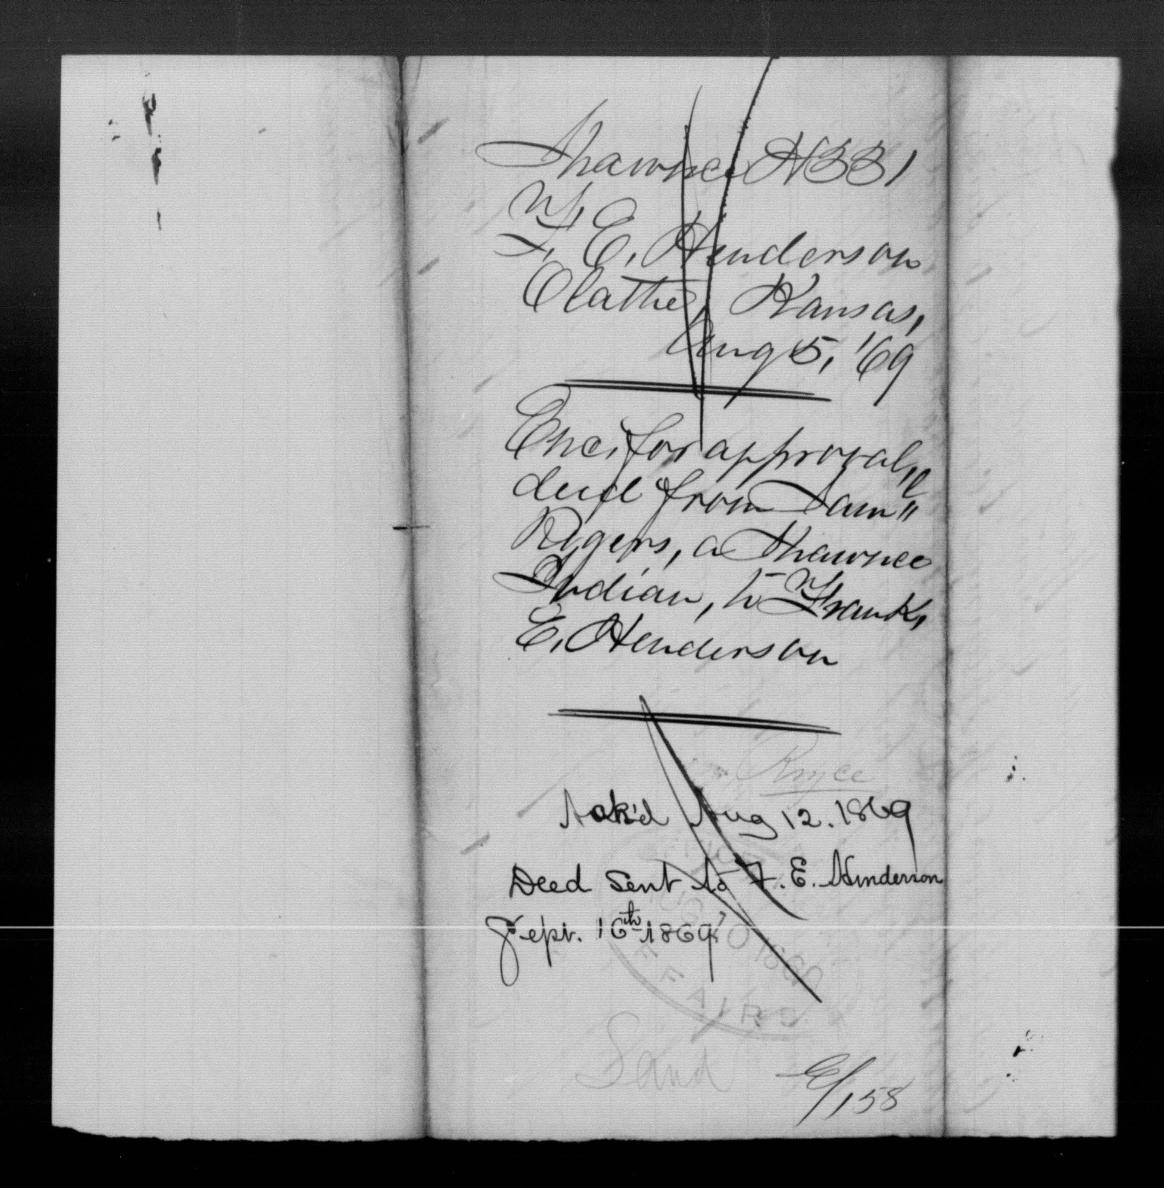 Shawnee H331
F. E. Henderson
Olathe, Kansas,
Aug 5, '69
Enc, for approval,
deed from Sam'l
Rogers, a Shawnee
Indian, to Frank,
E. Henderson
Ack'd Aug 12. 1869
Deed sent to F. E. Henderson
Sept. 16th 1869
AUG 10 1869
AFFAIRS
Land
158